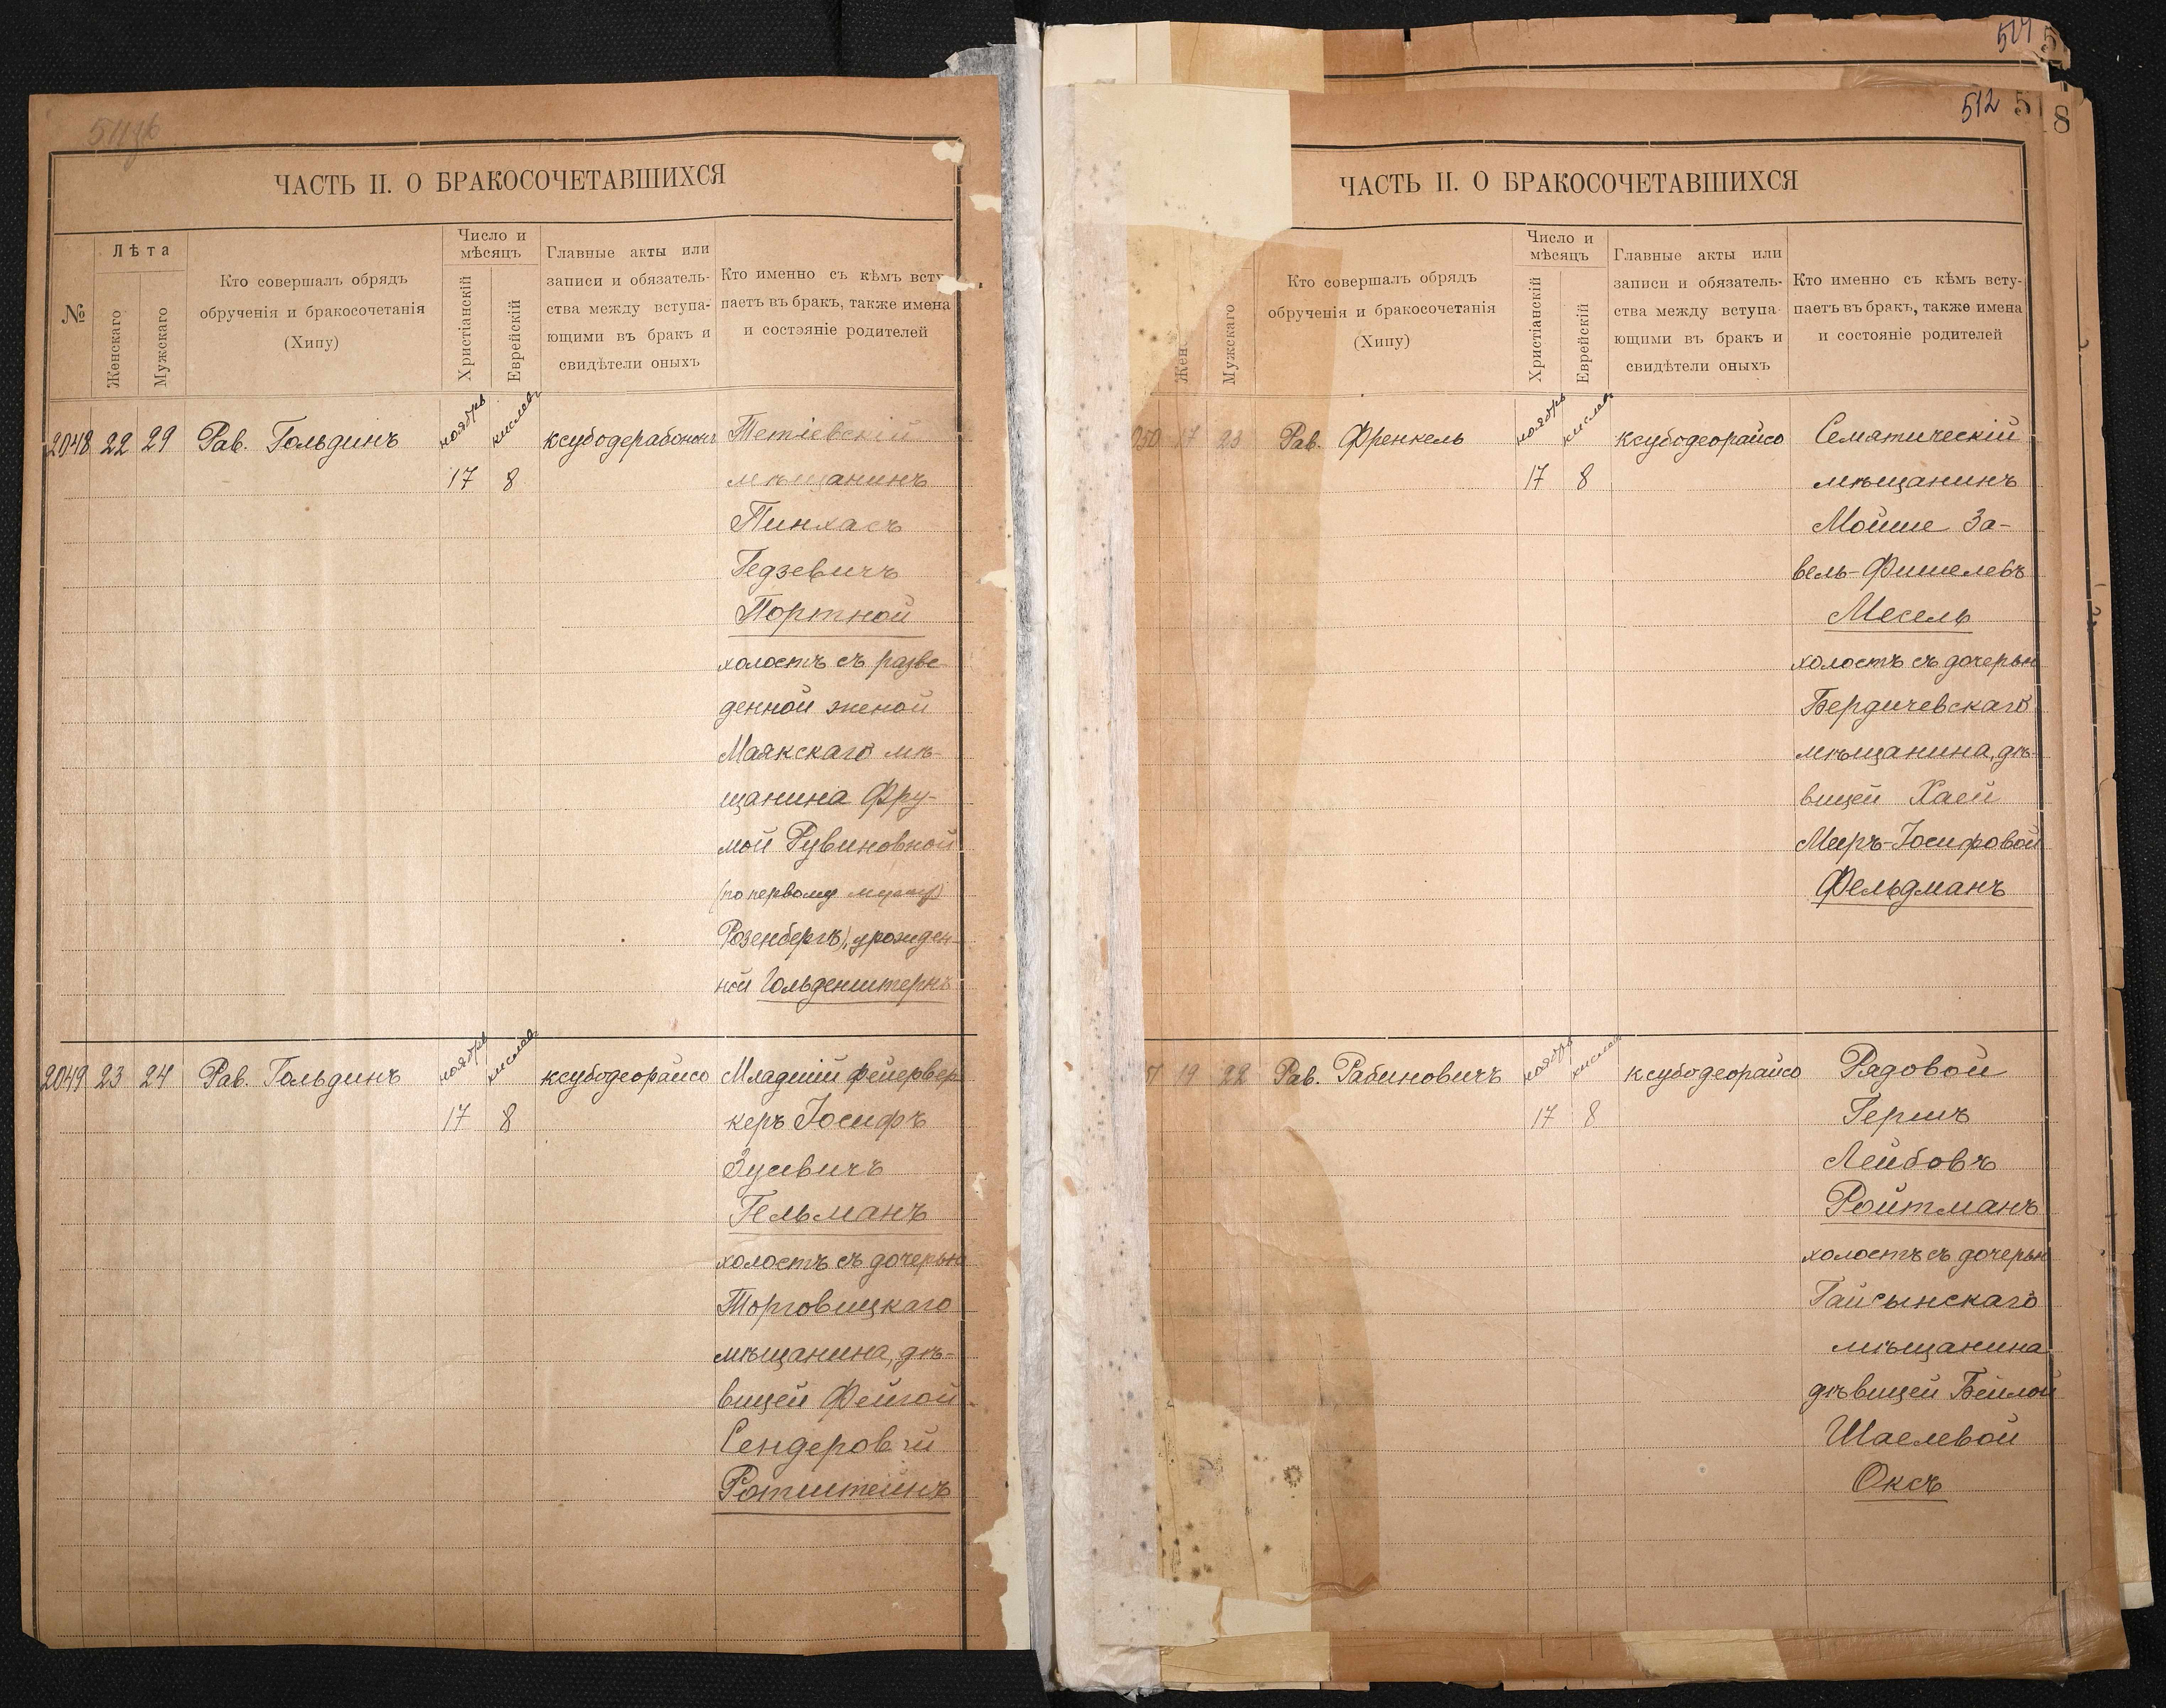 ЧАСТЬ II. О БРАКОСОЧЕТАВШИХСЯ
№
Лѣта
Женскаго
Мужскаго
Кто совершалъ обрядъ
обрученія и бракосочетанія
(Хипу)
Число и
мѣсяцъ
Христіанскій
Еврейскій
Главные акты или
записи и обязатель-
ства между вступа-
ющими въ бракъ и
свидѣтели оныхъ
Кто именно съ кѣмъ всту
паетъ въ бракъ, также имена
и состояніе родителей
2048 22 29 Рав. Гольдинъ ноябрь кислевъ ксубодерабононъ Тетіевскій
17 8 мѣщанинъ
Пинхасъ
Гедзевичъ
Портной
холостъ съ разве
денной женой
Маякскаго мѣ-
щанина Фру-
мой Рувиновной
(по первому мужу)
Розенбергъ), урожден-
ной Гольденштернъ
2049 23 24 Рав. Гольдинъ ноябрь кислевъ ксубодеорайсо Младшій фейервер
керъ Іосифъ
17 8
Зусевичъ
Гельманъ
холостъ съ дочерью
Торговицкаго
мѣщанина, дѣ-
вицей Фейгой
Сендеровой
Ротштейнъ
517
512 518
ЧАСТЬ II. О БРАКОСОЧЕТАВШИХСЯ
Жен
Мужскаго
Кто совершалъ обрядъ
обрученія и бракосочетанія
(Хипу)
Число и
мѣсяцъ
Христіанскій
Еврейскій
Главные акты или
записи и обязатель-
ства между вступа-
ющими въ бракъ и
свидѣтели оныхъ
Кто именно съ кѣмъ всту-
паетъ въ бракъ, также имена
и состояніе родителей
050 17 23 Рав. Френкель ноябрь кислевъ ксубодеорайсо Семятическій
17 8 мѣщанинъ
Мойше За-
вель-Фишелевъ
Месель
холостъ съ дочерью
Бердичевскаго
мѣщанина, дѣ-
вицей Хаей
Меиръ-Іосифовой
Фельдманъ
19 22 Рав. Рабиновичъ ноябрь кислевъ ксубодеорайсо Рядовой
17 8 Гершъ
Лейбовъ
Ройтманъ
холостъ съ дочерью
Гайсынскаго
мѣщанина
дѣвицей Бейлой
Шаелевой
Оксъ